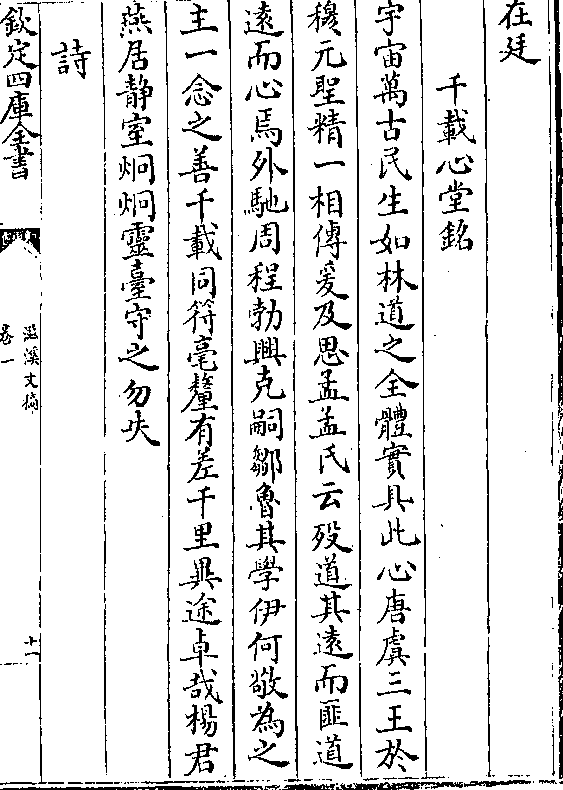 在廷
千載心堂銘
宇宙萬古民生如林道之全體實具此心唐虞三王於
穆元聖精一相傳爰及思孟孟氏云歿道其遠而匪道
遠而心焉外馳周程勃興克嗣鄒魯其學伊何敬為之
主一念之善千載同符毫釐有差千里異途卓哉楊君
燕居靜室炯炯靈臺守之勿失
詩
欽定四庫全書
卷一
溪文稿
十一